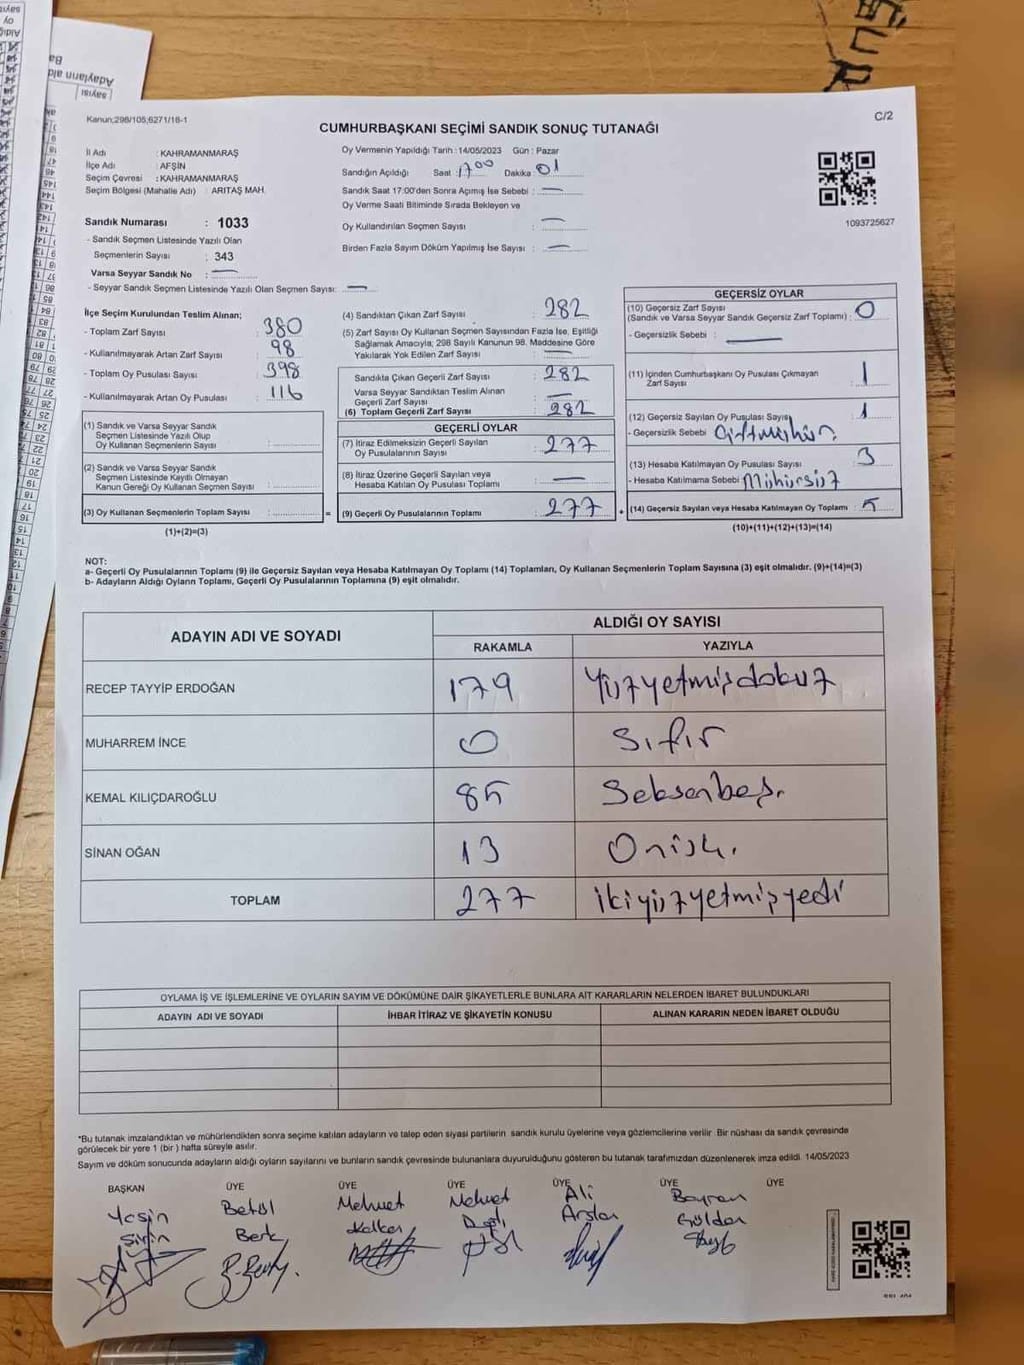 Kanun;298/105,6271/16-1
C/2
CUMHURBAŞKANI SEÇİMİ SANDIK SONUÇ TUTANAĞI
İl Adı : KAHRAMANMARAŞ
İlçe Adı : AFŞİN
Seçim Çevresi : KAHRAMANMARAŞ
Seçim Bölgesi (Mahalle Adı) : ARITAŞ MAH.
Sandık Numarası : 1033
- Sandık Seçmen Listesinde Yazılı Olan
Seçmenlerin Sayısı : 343
Varsa Seyyar Sandık No : —
- Seyyar Sandık Seçmen Listesinde Yazılı Olan Seçmen Sayısı: —
Oy Vermenin Yapıldığı Tarih : 14/05/2023 Gün : Pazar
Sandığın Açıldığı Saat : 17 00 Dakika : 01
Sandık Saat 17:00'den Sonra Açılmış İse Sebebi : —
Oy Verme Saati Bitiminde Sırada Bekleyen ve
Oy Kullandırılan Seçmen Sayısı : —
Birden Fazla Sayım Döküm Yapılmış İse Sayısı : —
1093725627
İlçe Seçim Kurulundan Teslim Alınan;
- Toplam Zarf Sayısı : 380
- Kullanılmayarak Artan Zarf Sayısı : 98
- Toplam Oy Pusulası Sayısı : 398
- Kullanılmayarak Artan Oy Pusulası : 116
(1) Sandık ve Varsa Seyyar Sandık
Seçmen Listesinde Yazılı Olup
Oy Kullanan Seçmenlerin Sayısı :
(2) Sandık ve Varsa Seyyar Sandık
Seçmen Listesinde Kayıtlı Olmayan
Kanun Gereği Oy Kullanan Seçmen Sayısı :
(3) Oy Kullanan Seçmenlerin Toplam Sayısı :
(1)+(2)=(3)
(4) Sandıktan Çıkan Zarf Sayısı : 282
(5) Zarf Sayısı Oy Kullanan Seçmen Sayısından Fazla İse, Eşitliği
Sağlamak Amacıyla; 298 Sayılı Kanunun 98. Maddesine Göre
Yakılarak Yok Edilen Zarf Sayısı : —
Sandıkta Çıkan Geçerli Zarf Sayısı : 282
Varsa Seyyar Sandıktan Teslim Alınan
Geçerli Zarf Sayısı : —
(6) Toplam Geçerli Zarf Sayısı : 282
GEÇERLİ OYLAR
(7) İtiraz Edilmeksizin Geçerli Sayılan
Oy Pusulalarının Sayısı : 277
(8) İtiraz Üzerine Geçerli Sayılan veya
Hesaba Katılan Oy Pusulası Toplamı : —
(9) Geçerli Oy Pusulalarının Toplamı : 277
GEÇERSİZ OYLAR
(10) Geçersiz Zarf Sayısı
(Sandık ve Varsa Seyyar Sandık Geçersiz Zarf Toplamı) : 0
- Geçersizlik Sebebi : —
(11) İçinden Cumhurbaşkanı Oy Pusulası Çıkmayan
Zarf Sayısı : 1
(12) Geçersiz Sayılan Oy Pusulası Sayısı : 1
- Geçersizlik Sebebi
(13) Hesaba Katılmayan Oy Pusulası Sayısı : 3
- Hesaba Katılmama Sebebi : Mühürsüz
(14) Geçersiz Sayılan veya Hesaba Katılmayan Oy Toplamı : 5
(10)+(11)+(12)+(13)=(14)
NOT:
a- Geçerli Oy Pusulalarının Toplamı (9) ile Geçersiz Sayılan veya Hesaba Katılmayan Oy Toplamı (14) Toplamları, Oy Kullanan Seçmenlerin Toplam Sayısına (3) eşit olmalıdır. (9)+(14)=(3)
b- Adayların Aldığı Oyların Toplamı, Geçerli Oy Pusulalarının Toplamına (9) eşit olmalıdır.
ADAYIN ADI VE SOYADI ALDIĞI OY SAYISI
RAKAMLA YAZIYLA
RECEP TAYYİP ERDOĞAN 179 Yüzyetmişdokuz
MUHARREM İNCE 0 Sıfır
KEMAL KILIÇDAROĞLU 85 Seksenbeş.
SİNAN OĞAN 13
TOPLAM 277 ikiyüzyetmişyedi
OYLAMA İŞ VE İŞLEMLERİNE VE OYLARIN SAYIM VE DÖKÜMÜNE DAİR ŞİKAYETLERLE BUNLARA AİT KARARLARIN NELERDEN İBARET BULUNDUKLARI
ADAYIN ADI VE SOYADI İHBAR İTİRAZ VE ŞİKAYETİN KONUSU ALINAN KARARIN NEDEN İBARET OLDUĞU
*Bu tutanak imzalandıktan ve mühürlendikten sonra seçime katılan adayların ve talep eden siyasi partilerin sandık kurulu üyelerine veya gözlemcilerine verilir. Bir nüshası da sandık çevresinde
görülecek bir yere 1 (bir) hafta süreyle asılır.
Sayım ve döküm sonucunda adayların aldığı oyların sayılarını ve bunların sandık çevresinde bulunanlara duyurulduğunu gösteren bu tutanak tarafımızdan düzenlenerek imza edildi. 14/05/2023
BAŞKAN ÜYE ÜYE ÜYE ÜYE ÜYE ÜYE
Yasin Betül Mehmet Mehmet Ali Bayram
Berk Arslan